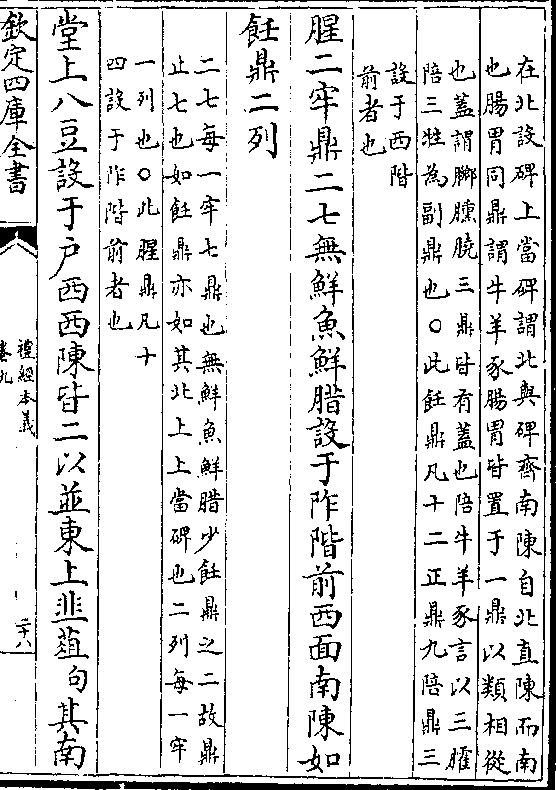 在北設碑上當碑謂北與碑齊南陳自北直陳而南
也腸胃同鼎謂牛羊豕腸胃皆置于一鼎以類相從
也蓋謂膷臐膮三鼎皆有蓋也陪牛羊豕言以三臛
陪三牲為副鼎也○此飪鼎凡十二正鼎九陪鼎三
設于西階
前者也
腥二牢鼎二七無鮮魚鮮腊設于阼階前西面南陳如
飪鼎二列
二七每一牢七鼎也無鮮魚鮮腊少飪鼎之二故鼎
止七也如飪鼎亦如其北上上當碑也二列每一牢
一列也○此腥鼎凡十
四設于阼階前者也
堂上八豆設于戶西西陳皆二以並東上韭菹句其南
欽定四庫全書
禮經本義
卷九
二十八